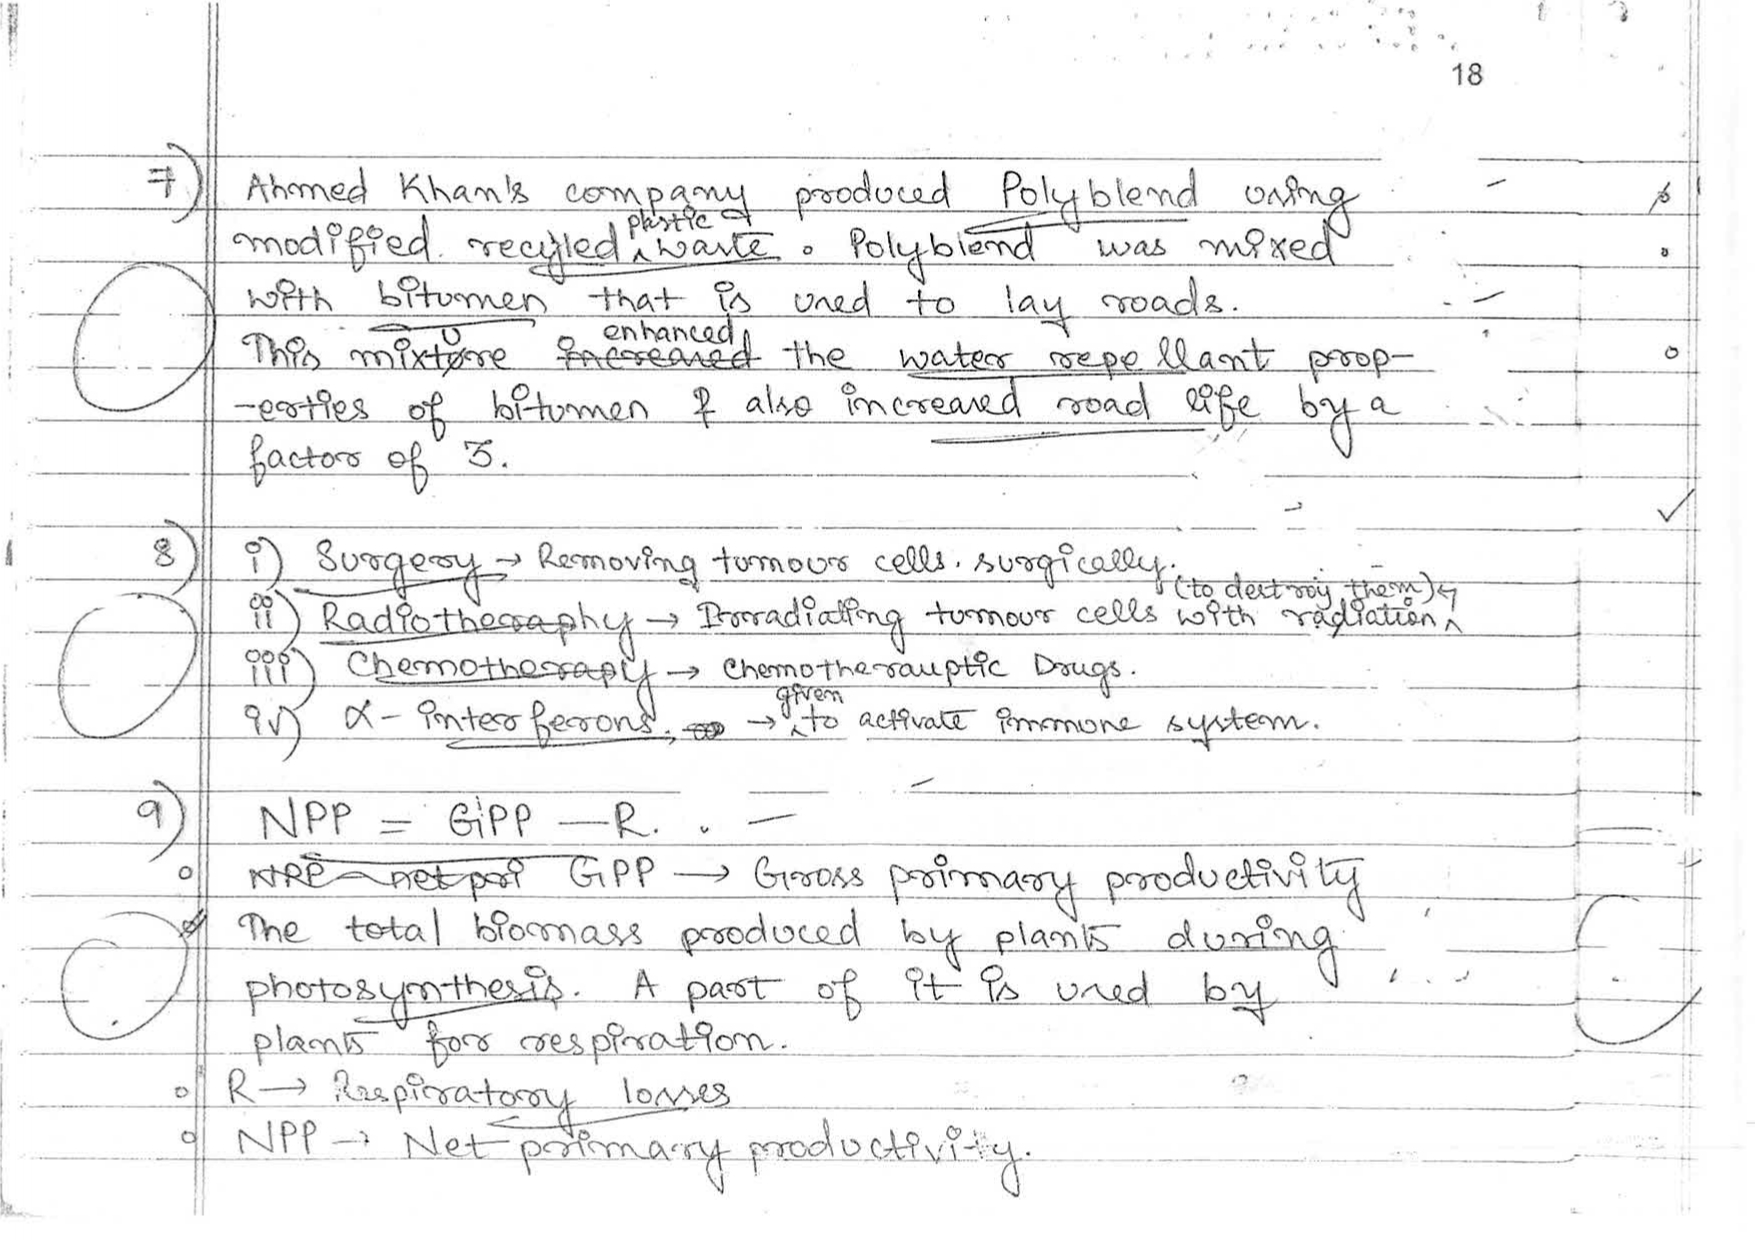 18
7) Ahmed Khan's company produced Polyblend using
modified recycled plastic waste. Polyblend was mixed
with bitumen that is used to lay roads.
This mixture increased enhanced the water repellant prop-
-erties of bitumen & also increased road life by a
factor of 3.
8) i) Surgery → Removing tumour cells surgically.
ii) Radiotheraphy → Irradiating tumour cells with radiation (to destroy them)
iii) Chemotherapy → Chemotherauptic Drugs.
iv) α - interferons → given to activate immune system.
9) NPP = GPP — R.
NPP - net pri GPP → Gross primary productivity
The total biomass produced by plants during
photosynthesis. A part of it is used by
plants for respiration.
R → Respiratory losses
NPP → Net primary productivity.